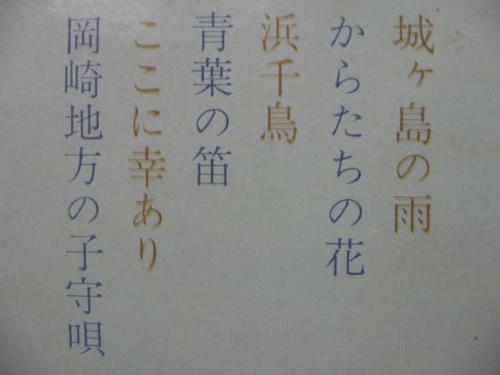 城ヶ島の雨
からたちの花
浜千鳥
青葉の笛
ここに幸あり
岡崎地方の子守唄